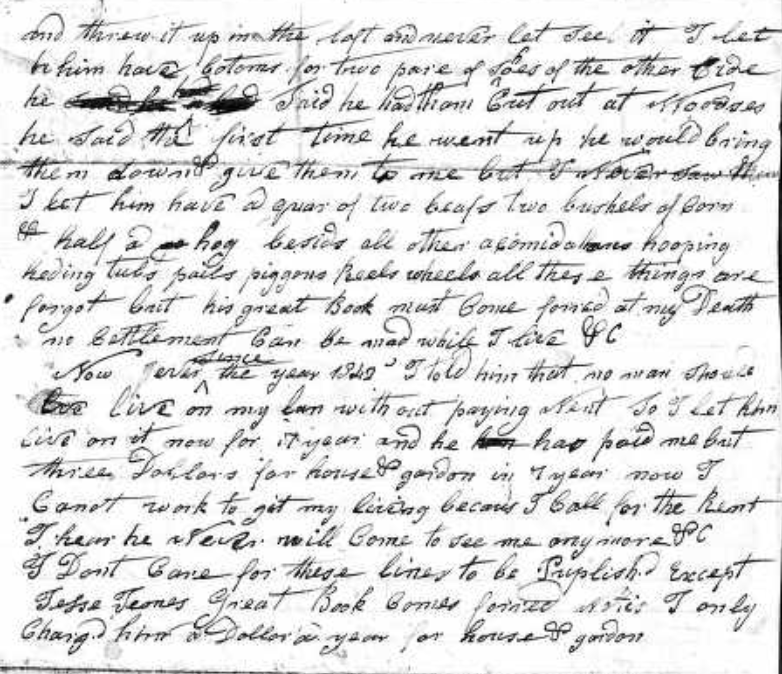 and threw it up in the loft and never let seel it I let
him have botoms for two pare of Soes of the other Side
he Said he had tham Cut out at Noodses
he Said the first time he went up he would bring
them down & give them to me but I Never saw them
I let him have a quar of two beafs two bushels of Corn
& half a hog besids all other acomidations hooping
keding tubs pails piggons Reels wheels all these things are
forgot but his great Book must Come forred at my Death
no Settlement Can be mad while I live &C
Now ever since the year 1842 I told him that no man should
live on my lan with out paying Rent So I let him
live on it now for 17 year and he has paid me but
three Dollars for house & gardon in 7 year now I
Canot work to git my living becaus I Call for the Rent
I hear he Never will Come to see me any more &C
I Dont Care for these lines to be Puplishd Except
Jesse Jeones Great Book Comes forred I only
Chargd him a Dollor a year for house & gardon